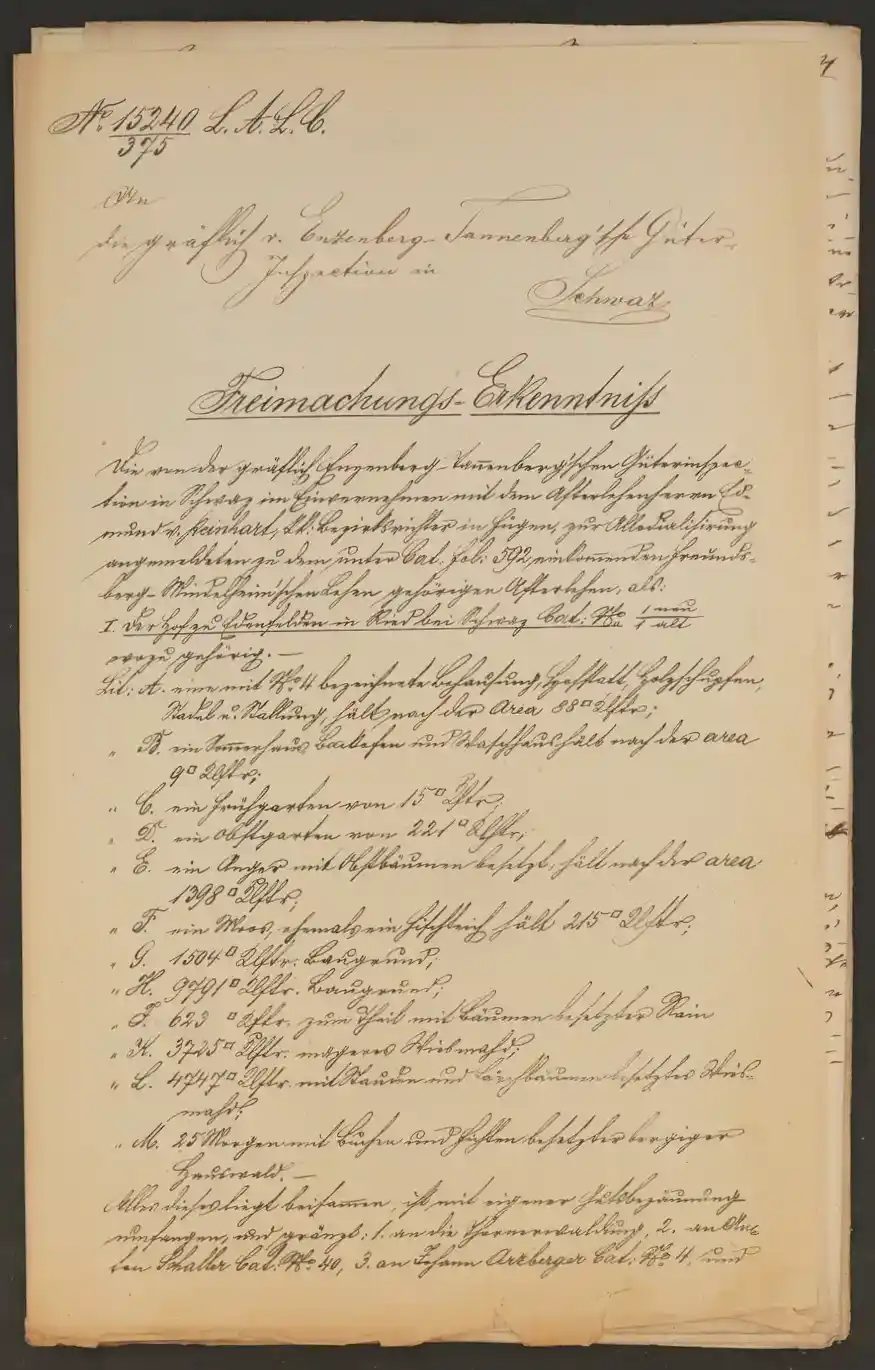 4
No 15240 L. A. L. C.
375
An
die gräflich v. Enzenberg-Tannenberg'sche Güter-
Inspection in
Schwaz
Freimachungs-Erkenntniß
Die von der gräflich Enzenberg-Tannenberg'schen Güterinspec-
tion in Schwaz im Einvernehmen mit dem Afterlehenherrn Ed-
mund v. Reinhart, k.k. Bezirksrichter in Fügen, zur Allodialisirung
angemeldeten zu dem unter Cat. Fol: 592 einkommenden Freunds-
berg-Mindelheim'schen Lehen gehörigen Afterlehen, als:
I. Der Hof zu Edenfelden in Ried bei Schwaz Cat: No 1 neu
1 alt
wozu gehörig. —
Lit: A. eine mit No 4 bezeichnete Behausung, Hofstatt, Holzschupfen,
Stadel u. Stallung, hält nach der Area 88□ Klftr;
" B. ein Sommerhaus Backofen und Waschhaus hält nach der area
9□ Klftr;
" C. ein Frühgarten von 15□ Klftr;
" D. ein Obstgarten von 221□ Klftr;
" E. ein Anger mit Obstbäumen besetzt, hält nach der area
1398□ Klftr;
" F. ein Moos, ehemals ein Fischteich hält 215□ Klftr;
" G. 1504□ Klftr. Baugrund;
" H. 9791□ Klftr. Baugrund;
" J. 623 □ Klftr. zum Theil mit Bäumen besetzter Rain
" K. 3725□ Klftr. mageres Wiesmahd;
" L. 4747□ Klftr. mit Stauden und Lärchbäumen besetztes Wies-
mahd;
" M. 25 Morgen mit Buchen und Fichten besetzter bergiger
Hauswald. —
Alles dieses liegt beisammen, ist mit eigener Gutsbezäunung
umfangen, und gränzt: 1. an die Thernerwaldung, 2. an An-
ton Schaller Cat: No 40, 3. an Johann Arzberger Cat: No 4, und